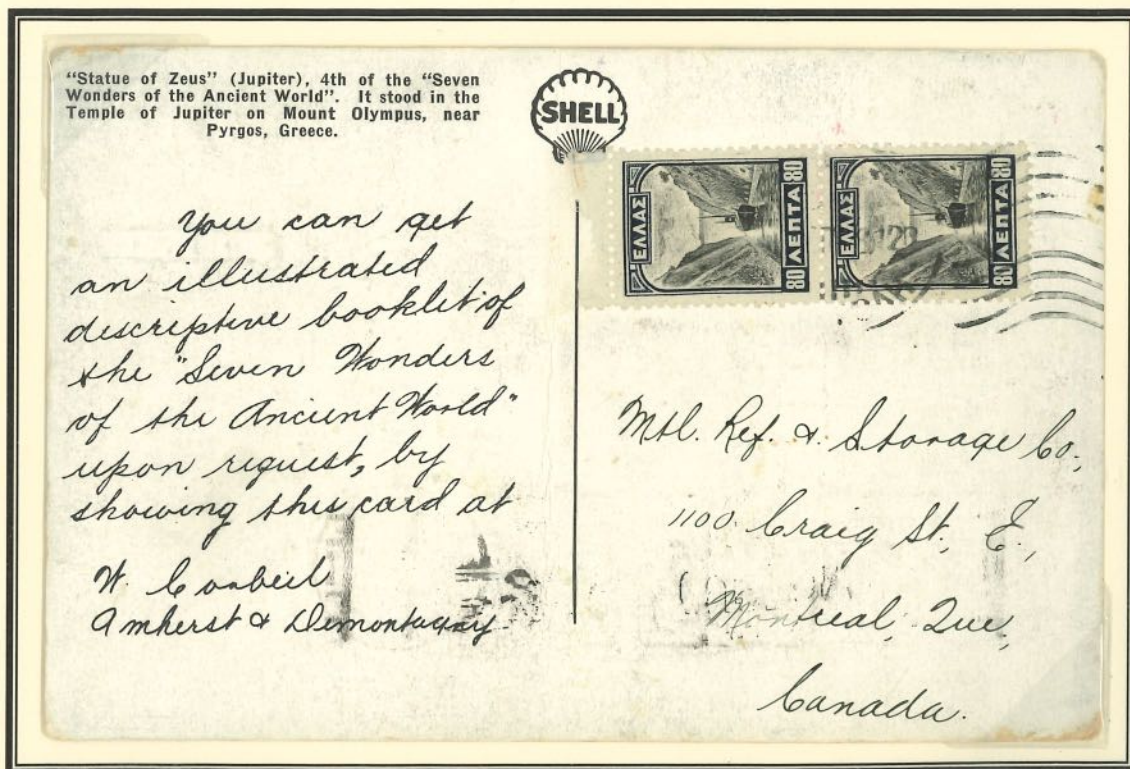 "Statue of Zeus" (Jupiter), 4th of the "Seven
Wonders of the Ancient World". It stood in the
Temple of Jupiter on Mount Olympus, near
Pyrgos, Greece.
SHELL
ΕΛΛΑΣ
80 ΛΕΠΤΑ 80
ΕΛΛΑΣ
80 ΛΕΠΤΑ 80
You can get
an illustrated
descriptive booklet of
the "Seven Wonders
of the Ancient World"
upon request, by
showing this card at
W. Corbeil
Amherst & Demontigny
Mtl. Ref. & Storage Co.,
1100 Craig St. E.,
Montreal, Que,
Canada.